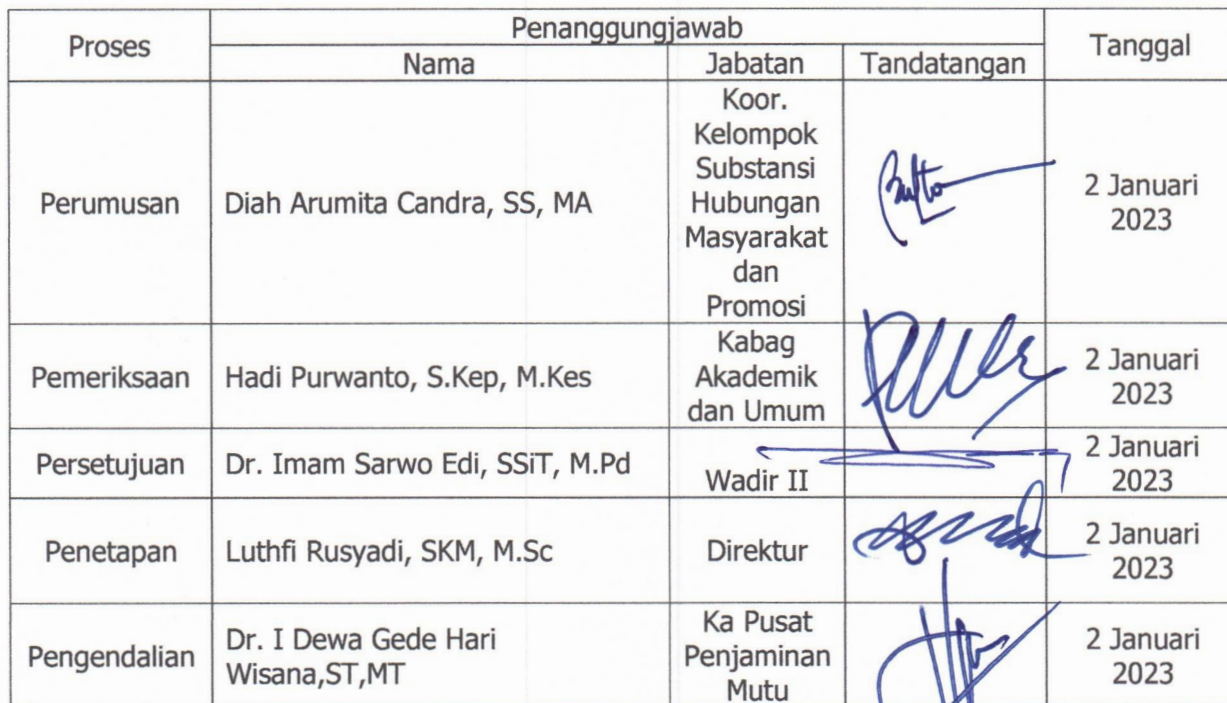 Proses
Penanggungjawab
Tanggal
Nama
Jabatan
Tandatangan
Perumusan
Diah Arumita Candra, SS, MA
Koor.
Kelompok
Substansi
Hubungan
Masyarakat
dan
Promosi
2 Januari
2023
Pemeriksaan
Hadi Purwanto, S.Kep, M.Kes
Kabag
Akademik
dan Umum
2 Januari
2023
Persetujuan
Dr. Imam Sarwo Edi, SSiT, M.Pd
Wadir II
2 Januari
2023
Penetapan
Luthfi Rusyadi, SKM, M.Sc
Direktur
2 Januari
2023
Pengendalian
Dr. I Dewa Gede Hari
Wisana,ST,MT
Ka Pusat
Penjaminan
Mutu
2 Januari
2023